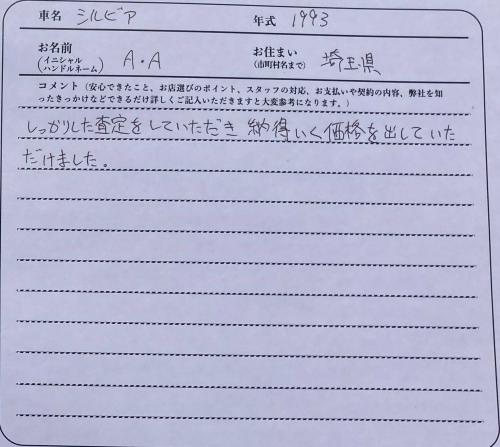 車名 シルビア 年式 1993
お名前 (イニシャル ハンドルネーム) A.A お住まい (市町村名まで) 埼玉県
コメント (安心できたこと、お店選びのポイント、スタッフの対応、お支払いや契約の内容、弊社を知
ったきっかけなどできるだけ詳しくご記入いただきますと大変参考になります。)
しっかりした査定をしていただき 納得いく価格を出していた
だけました。